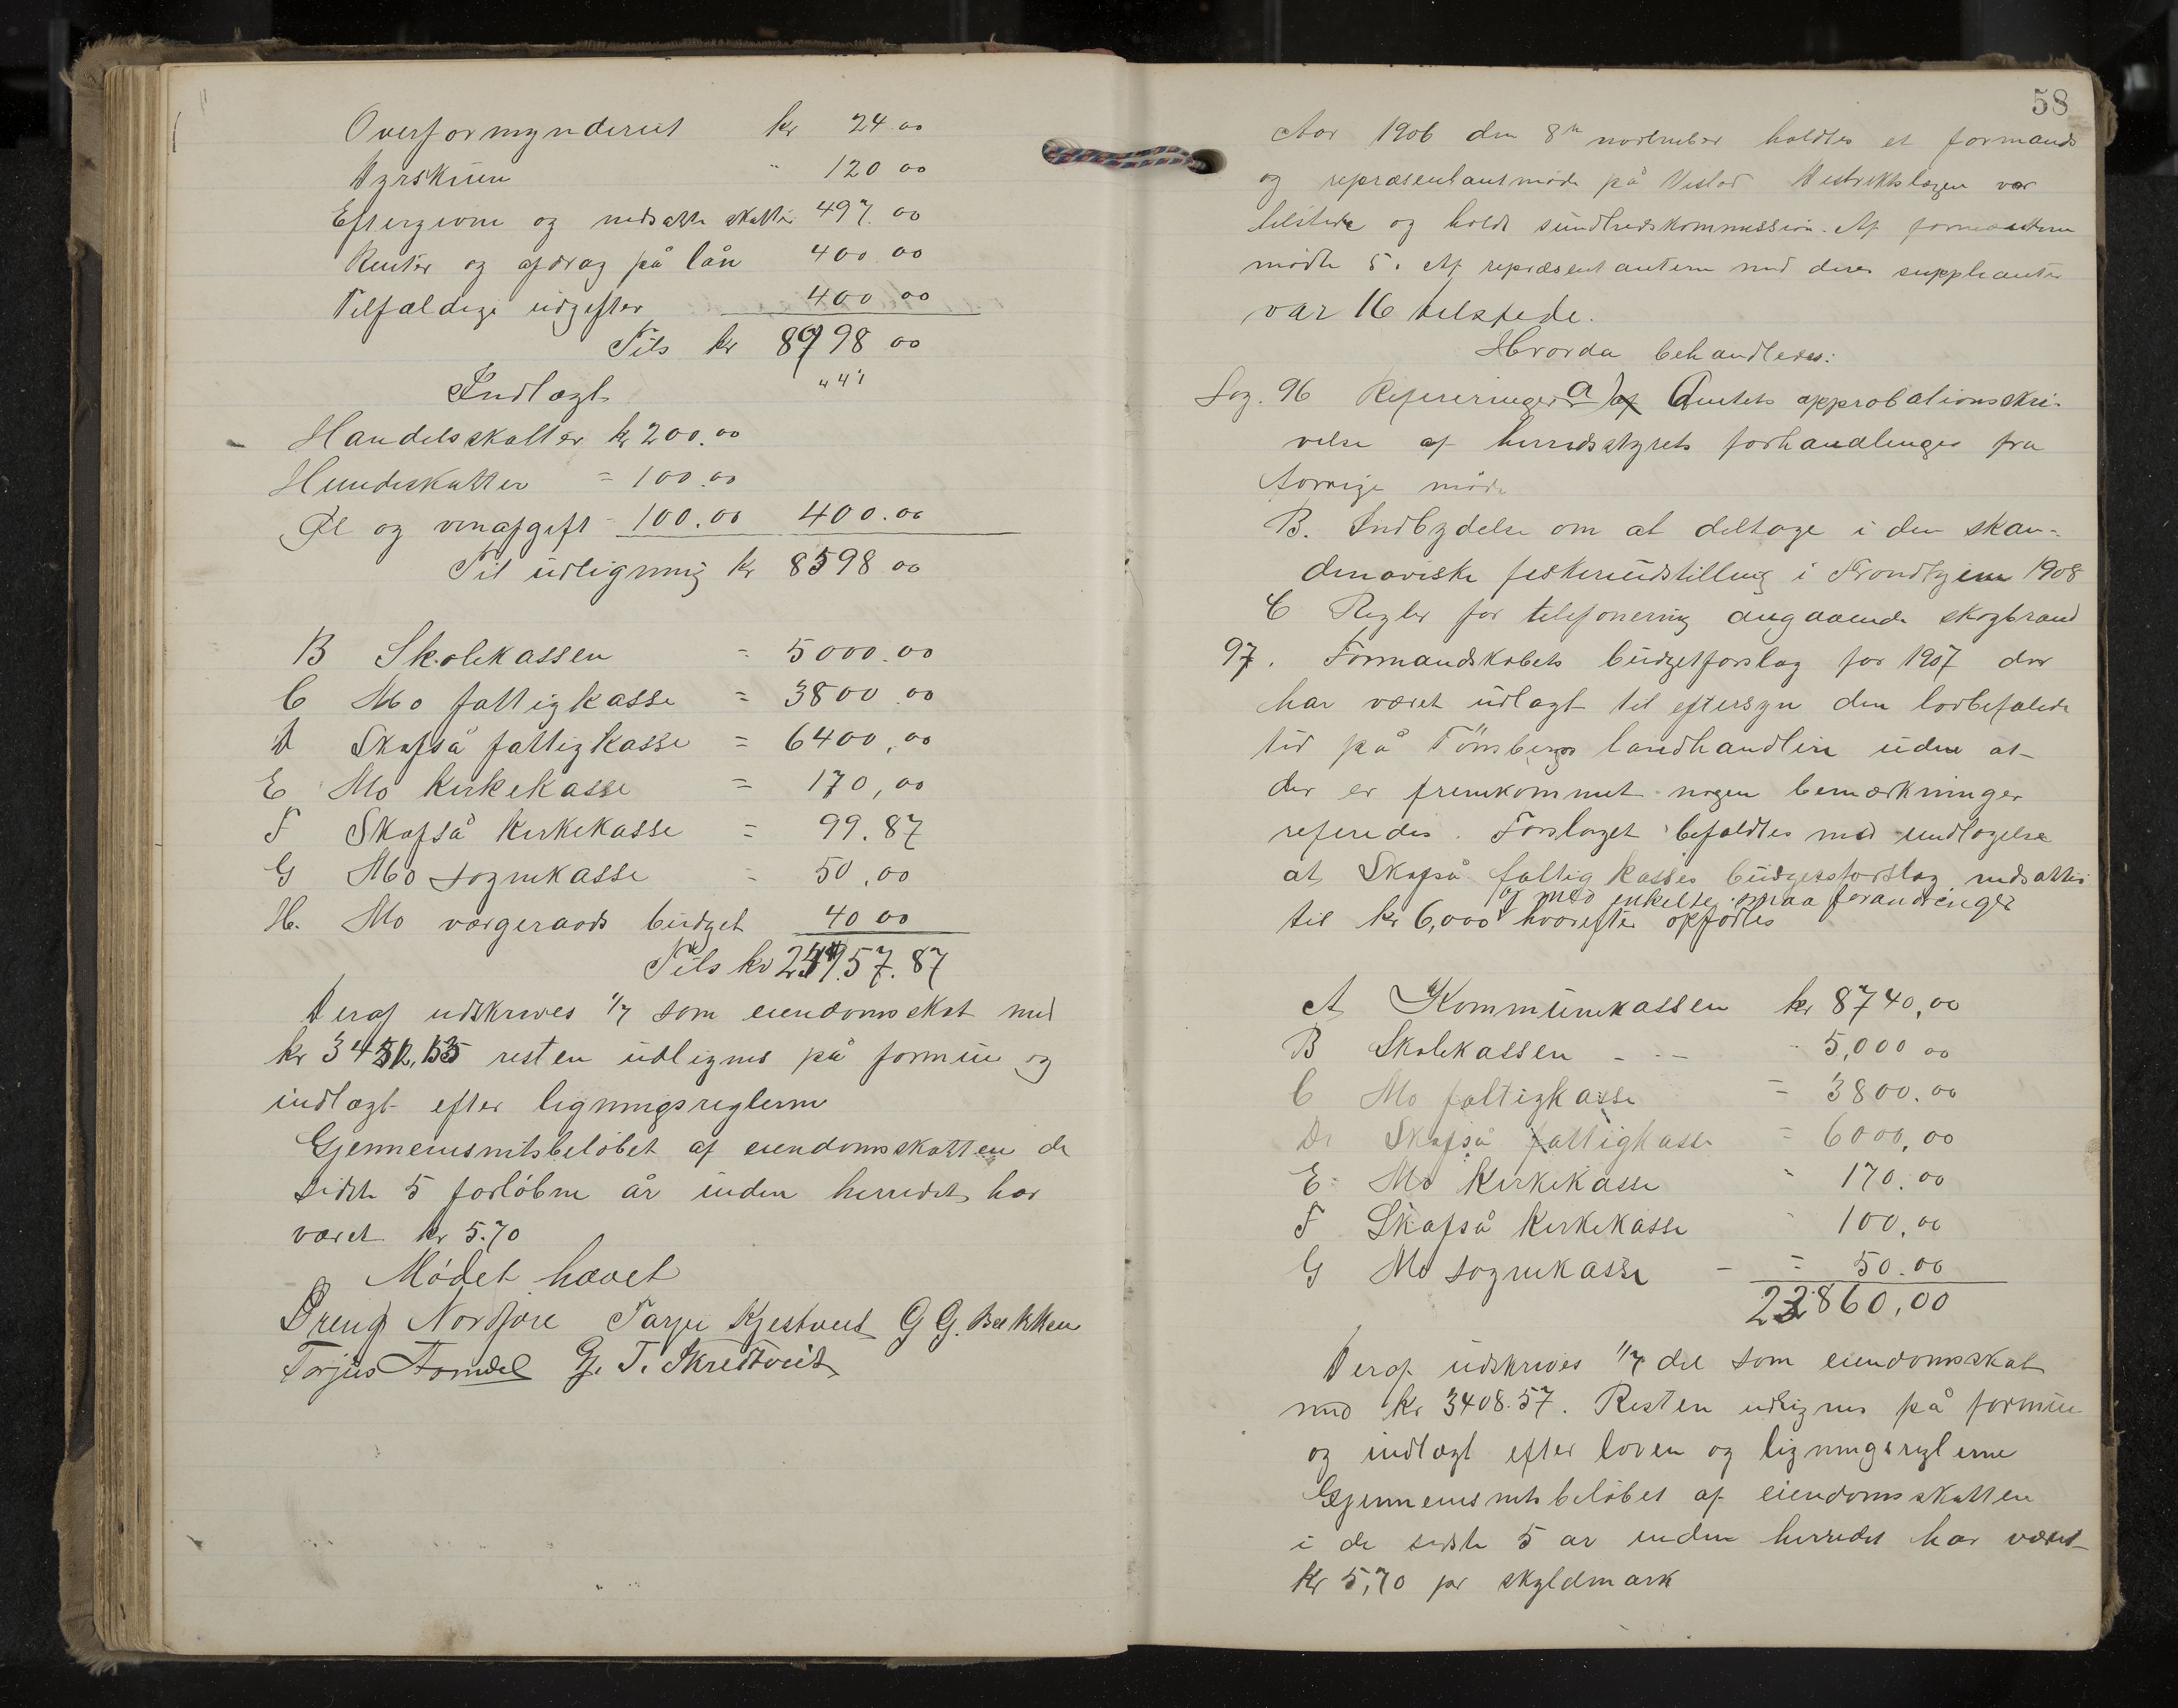 Overformynderiet kr 24.00
Dyrskuen " 120 00
Eftergivne og nedsatte skatter 497.00
Renter og afdrag på lån 400.00
Tilfældige udgifter 400 00
Tils kr 8998 00
Indtægt " " "
Handelsskatter kr 200.00
Hundeskatter = 100.00
Øl og vinafgift - 100.00 400.00
Til udligning kr 8598 00
B Skolekassen = 5000.00
C Mo fattigkasse = 3800.00
D Skafså fattigkasse = 6400,00
E Mo kirkekasse = 170,00
F Skafså kirkekasse = 99.87
G Mo sognekasse = 50,00
H. Mo værgeraads budget 40 00
Tils kr 24157.87
Deraf udskrives 1/7 som eiendomsskat med
kr resten udlignes på formue og
indtægt efter ligningsreglerne
Gjennemsnitsbeløbet af eiendomsskatten de
sidste 5 forløbne år inden herredet har
været kr 5.70
Mødet hævet
Dreng Nordjore Tarjei Kjestveit G G. Bekken
Torjus Tomdel G. T. Skredtveit
58
Aar 1906 den 8de november holdtes et formands
og repræsentantmøde på Vistad Distriktslægen var
tilstede og holdt sundhedskommission. Af formændene
mødte 5. Af repræsentanterne med deres suppleanter
var 16 tilstede.
Hvorda behandledes:
Sag. 96 Refereringer a) Amtets approbationsskri-
velse af herredsstyrets forhandlinger fra
forrige møde
B. Indbydelse om at deltage i den skan-
dinaviske fiskeriudstilling i Trondhjem 1908
C Regler for telefonering angaaende skogbrand
97. Formandskabets budgetforslag for 1907 der
har været udlagt til eftersyn den lovbefalede
tid på Tømsbergs landhandleri uden at
der er fremkommet nogen bemærkninger
referedes. Forslaget befaldtes med undtagelse
at Skafså fattigkasses budgetsforslag nedsattes
og med enkelte smaa forandringer
til kr 6,000 hvorefter opførtes
A Kommunekassen kr 8740,00
B Skolekassen - - - 5,000 00
C Mo fattigkasse = 3800.00
D Skafså fattigkasse = 6000,00
E Mo kirkekasse " 170.00
F Skafså kirkekasse " 100,00
G Mo sognekasse - = 50.00
23860,00
Deraf udskrives 1/7 del som eiendomsskat
med kr 3408.57. Resten udlignes på formue
og indtægt efter loven og ligningsreglerne
Gjennemsnitsbeløbet af eiendomsskatten
i de sidste 5 år inden herredet har været
kr 5,70 pr skyldmark